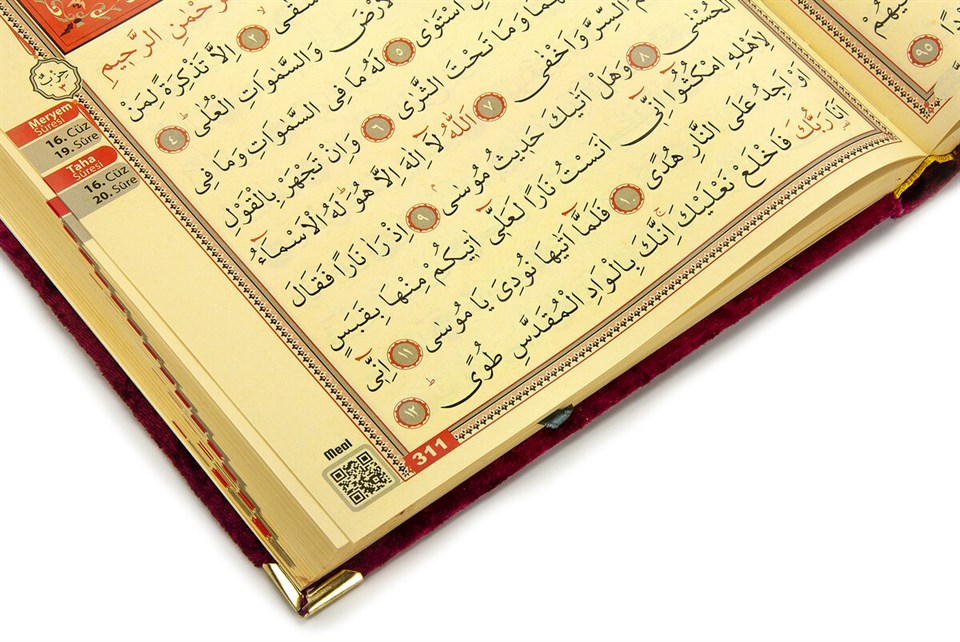 الرَّحِيمِ
٢ اِلَّا تَذْكِرَةً لِمَنْ
وَالسَّمٰوَاتِ الْعُلٰى ٤
اسْتَوٰى ٥ لَهُ مَا فِى السَّمٰوَاتِ وَمَا فِى
وَمَا تَحْتَ الثَّرٰى ٦ وَاِنْ تَجْهَرْ بِالْقَوْلِ
السِّرَّ وَاَخْفٰى ٧ اَللّٰهُ لَا اِلٰهَ اِلَّا هُوَ لَهُ الْاَسْمَاءُ
الْحُسْنٰى ٨ وَهَلْ اَتٰيكَ حَدِيثُ مُوسٰى ٩ اِذْ رَاٰ نَارًا فَقَالَ
لِاَهْلِهِ امْكُثُوا اِنِّى اٰنَسْتُ نَارًا لَعَلِّى اٰتِيكُمْ مِنْهَا بِقَبَسٍ
اَوْ اَجِدُ عَلَى النَّارِ هُدًى ١٠ فَلَمَّا اَتٰيهَا نُودِىَ يَا مُوسٰى ١١ اِنِّى
اَنَا رَبُّكَ فَاخْلَعْ نَعْلَيْكَ اِنَّكَ بِالْوَادِ الْمُقَدَّسِ طُوًى ١٢
٩٥
حزب
٣
Meryem
Sûresi
16. Cüz
19. Sûre
Taha
Sûresi
16. Cüz
20. Sûre
Meal
311